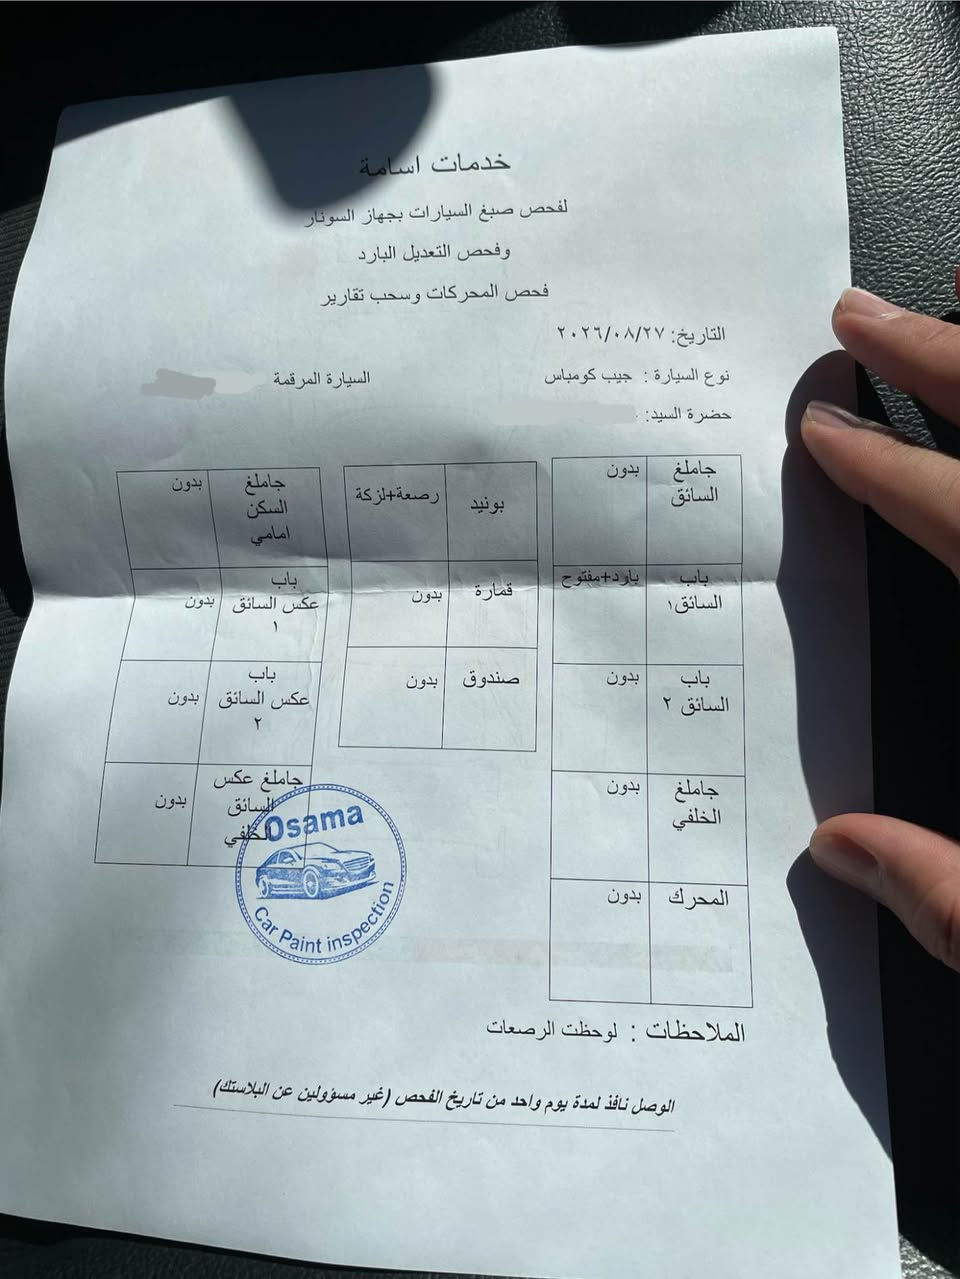 خدمات اسامة
لفحص صبغ السيارات بجهاز السونار
وفحص التعديل البارد
فحص المحركات وسحب تقارير
التاريخ: ٢٠٢٦/٠٨/٢٧
نوع السيارة : جيب كومباس
السيارة المرقمة
حضرة السيد:
جاملغ السائق بدون
باب السائق١ بارد+مفتوح
باب السائق ٢ بدون
جاملغ الخلفي بدون
المحرك بدون
بونيد رصعة+لزكة
قمارة بدون
صندوق بدون
جاملغ السكن امامي بدون
باب عكس السائق ١ بدون
باب عكس السائق ٢ بدون
جاملغ عكس السائق الخلفي بدون
Osama
Car Paint inspection
الملاحظات : لوحظت الرصعات
الوصل نافذ لمدة يوم واحد من تاريخ الفحص (غير مسؤولين عن البلاستك)